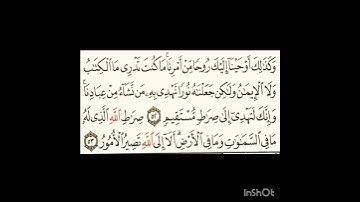 وَكَذَٰلِكَ أَوْحَيْنَا إِلَيْكَ رُوحًا مِّنْ أَمْرِنَا ۚ مَا كُنتَ تَدْرِى مَا ٱلْكِتَٰبُ
وَلَا ٱلْإِيمَٰنُ وَلَٰكِن جَعَلْنَٰهُ نُورًا نَّهْدِى بِهِۦ مَن نَّشَآءُ مِنْ عِبَادِنَا ۚ
وَإِنَّكَ لَتَهْدِىٓ إِلَىٰ صِرَٰطٍ مُّسْتَقِيمٍ ٥٢ صِرَٰطِ ٱللَّهِ ٱلَّذِى لَهُۥ
مَا فِى ٱلسَّمَٰوَٰتِ وَمَا فِى ٱلْأَرْضِ ۗ أَلَآ إِلَى ٱللَّهِ تَصِيرُ ٱلْأُمُورُ ٥٣
InShOt